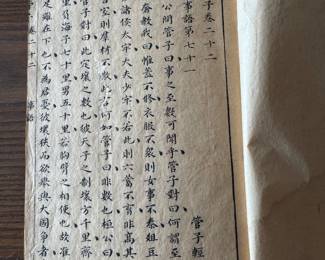 子卷二十二
管子輕
事語第七十一
公問管子曰事之至數可聞乎管子對曰何謂至
奢教我曰帷蓋不修衣服不衆則女事不泰俎豆
諸侯太牢大夫少牢不若此則六畜不育非高其
室則羣材不散此言何如管子曰非數也桓公曰
管子對曰此定壤之數也彼天子之制壤方千里齊
里負海子七十里男五十里若胸臂之相使也故準
足雖在下也不為君憂彼壤狹而欲舉與大國爭者
卷二十二 事語